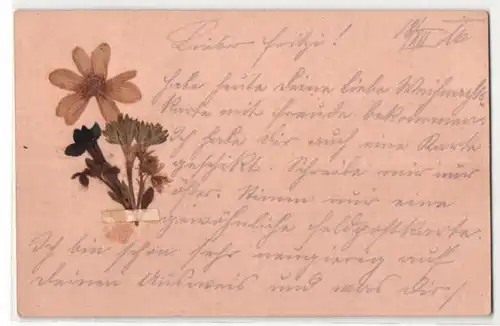 Lieber Fritzi! 18/XII 16
habe heute deine liebe Weihnachts
Karte mit Freude bekommen.
Ich habe dir auch eine Karte
geschickt. Schreibe mir nur
öfter. Nimm nur eine
gewöhnliche Feldpostkarte.
Ich bin schon sehr neugierig auf
deinen Ausweis und was dir